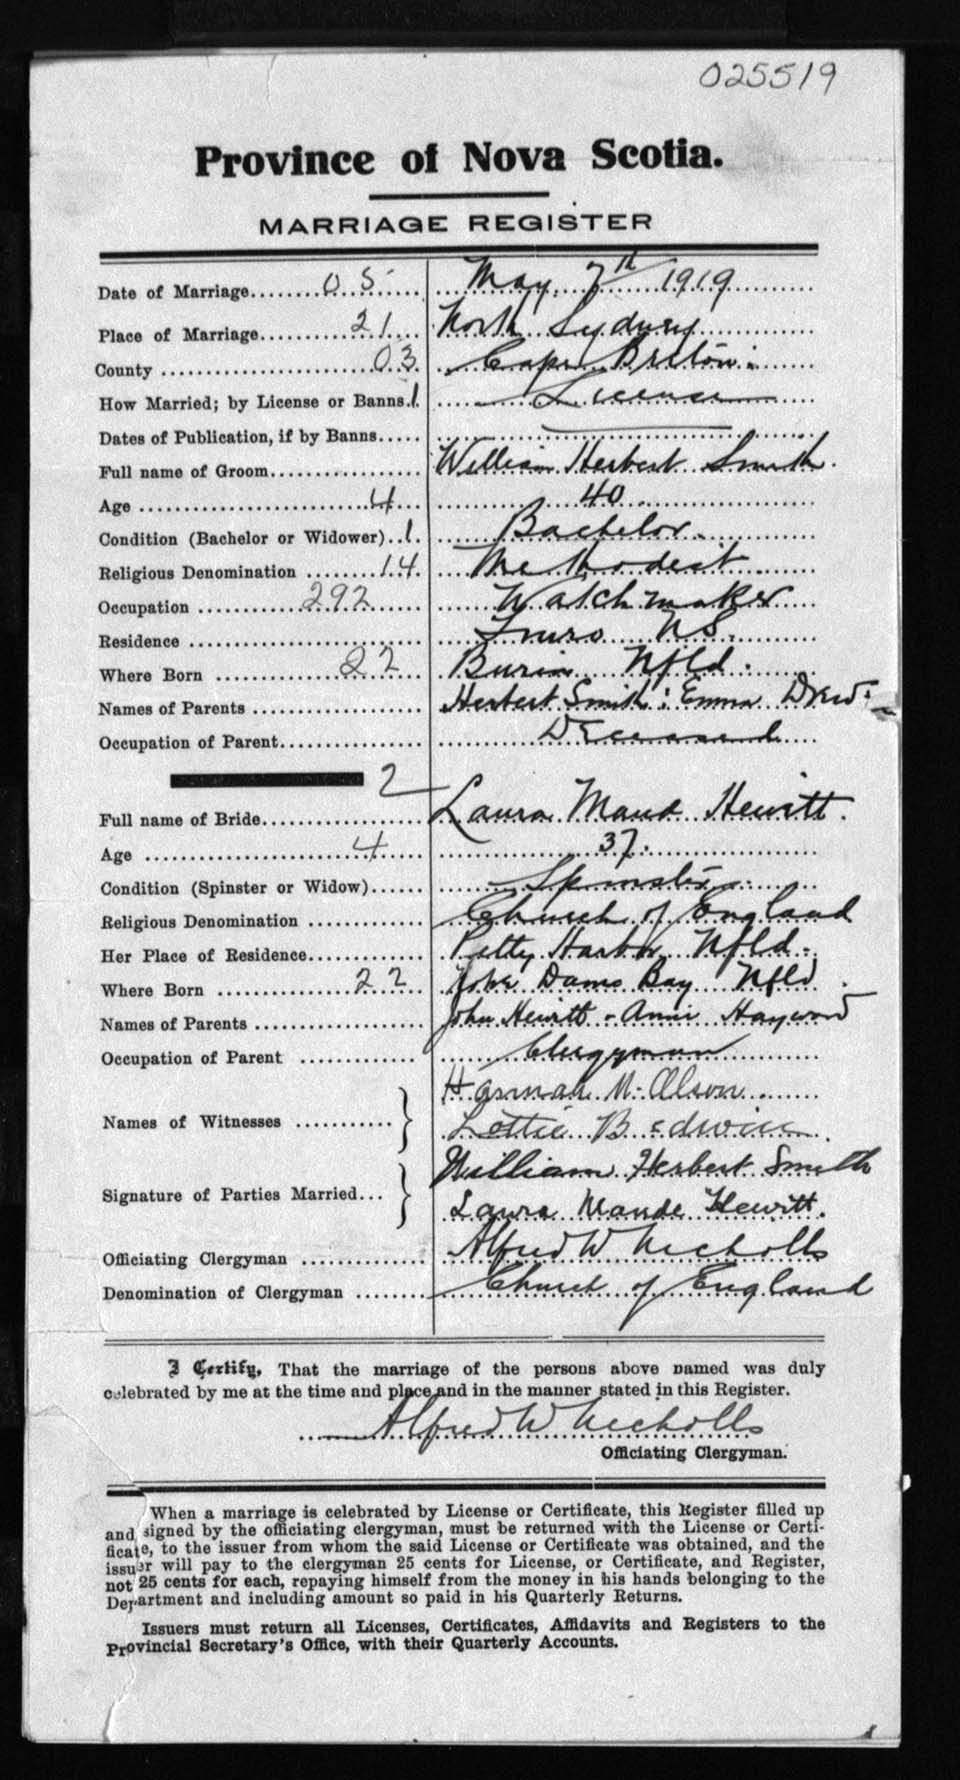 025519
Province of Nova Scotia.
MARRIAGE REGISTER
Date of Marriage........05...... May 7th 1919
Place of Marriage...........21... North Sydney
County ........................03. Cape Breton
How Married; by License or Banns.1. License
Dates of Publication, if by Banns.....
Full name of Groom................. William Herbert Smith.
Age ........................4... 40
Condition (Bachelor or Widower)..1. Bachelor.
Religious Denomination .......14 Methodist
Occupation ..........292...... Watch maker
Residence ........................ Truro NS.
Where Born .............22 Burin Nfld.
Names of Parents ................... Herbert Smith: Emma Drew:
Occupation of Parent................ Deceased
2
Full name of Bride................... Laura Maud Hewitt.
Age ......................4..... 37.
Condition (Spinster or Widow)...... Spinster
Religious Denomination ............ Church of England
Her Place of Residence............. Petty Harbor Nfld.
Where Born ..............22.. Dams Bay Nfld.
Names of Parents .................. John Hewitt - Annie Hayward
Occupation of Parent ............. Clergyman
Hannah M. Olson
Names of Witnesses ............ }
Lottie B
William Herbert Smith
Signature of Parties Married... }
Laura Maude Hewitt.
Officiating Clergyman .............. Alfred W Nicholls
Denomination of Clergyman ........ Church of England
I Certify, That the marriage of the persons above named was duly
celebrated by me at the time and place and in the manner stated in this Register.
Alfred W Nicholls
Officiating Clergyman.
When a marriage is celebrated by License or Certificate, this Register filled up
and signed by the officiating clergyman, must be returned with the License or Certi-
ficate, to the issuer from whom the said License or Certificate was obtained, and the
issuer will pay to the clergyman 25 cents for License, or Certificate, and Register,
not 25 cents for each, repaying himself from the money in his hands belonging to the
Department and including amount so paid in his Quarterly Returns.
Issuers must return all Licenses, Certificates, Affidavits and Registers to the
Provincial Secretary's Office, with their Quarterly Accounts.